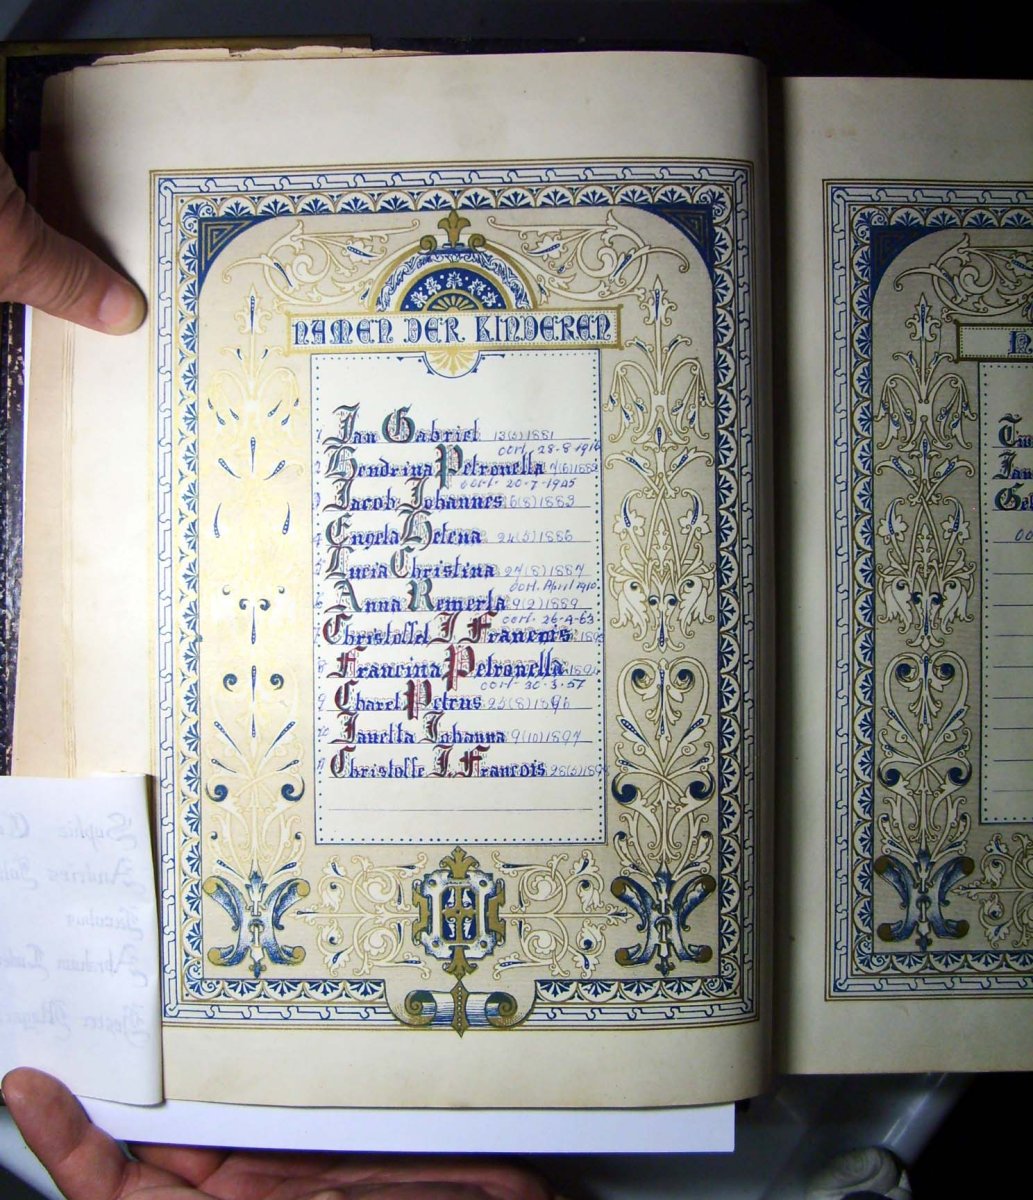 NAMEN DER KINDEREN
1 Jan Gabriel 13(5)1881
oorl. 28-8-1916
2 Hendrina Petronella
oorl. 20-7-1945
3 Jacob Johannes 6(8)1883
4 Engela Helena 24(5)1886
5 Lucia Christina 27(8)1887
oorl. April 1910
6 Anna Remerta 9(2)1889
oorl. 26-4-63
7 Christoffel J. Francois
8 Francina Petronella
oorl. 30-3-57
9 Charel Petrus 25(8)1896
10 Janetta Johanna 9(10)1897
11 Christoffe J. Francois
Sophia
Andries
Jacobus
Abraham
Hester